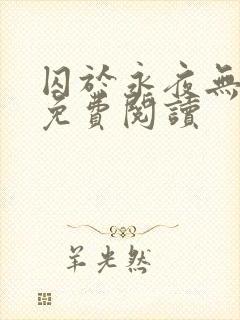 囚於永夜無
免費閱讀
羊光然